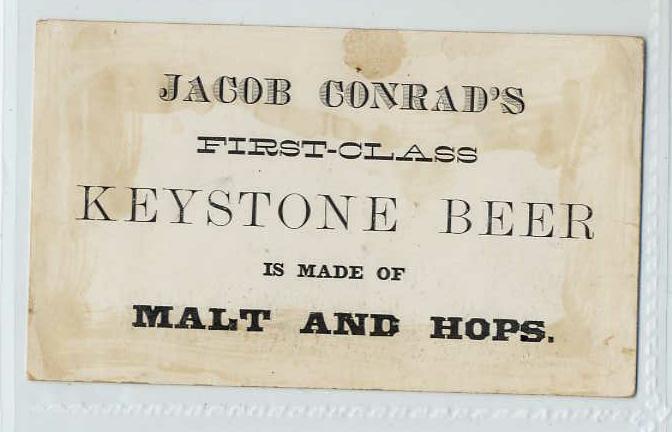 JACOB CONRAD'S
FIRST-CLASS
KEYSTONE BEER
IS MADE OF
MALT AND HOPS.